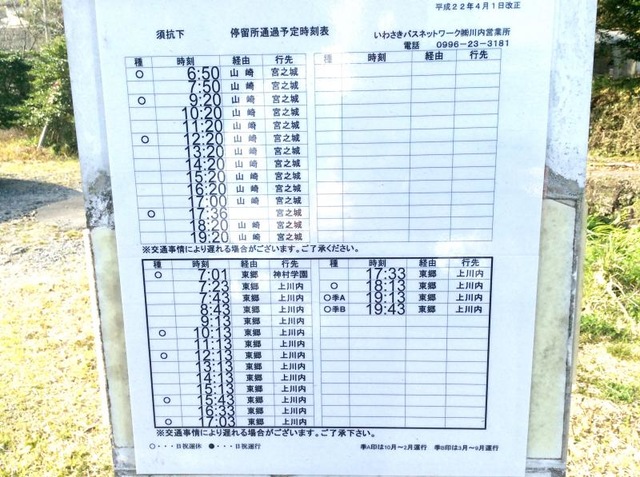 平成22年4月1日改正
須抗下　停留所通過予定時刻表　いわさきバスネットワーク㈱川内営業所
電話　0996-23-3181
種　時刻　経由　行先　種　時刻　経由　行先
○　6:50　山崎　宮之城
7:50　山崎　宮之城
○　9:20　山崎　宮之城
10:20　山崎　宮之城
11:20　山崎　宮之城
○　12:20　山崎　宮之城
13:20　山崎　宮之城
14:20　山崎　宮之城
15:20　山崎　宮之城
16:20　山崎　宮之城
17:00　山崎　宮之城
○　17:36　宮之城
18:20　山崎　宮之城
19:20　山崎　宮之城
※交通事情により遅れる場合がございます。ご了承ください。
種　時刻　経由　行先　種　時刻　経由　行先
○　7:01　東郷　神村学園　17:33　東郷　上川内
7:23　東郷　上川内　○　18:13　東郷　上川内
7:43　東郷　上川内　○季A　19:13　東郷　上川内
8:43　東郷　上川内　○季B　19:43　東郷　上川内
9:13　東郷　上川内
○　10:13　東郷　上川内
11:13　東郷　上川内
○　12:13　東郷　上川内
13:13　東郷　上川内
14:13　東郷　上川内
15:13　東郷　上川内
○　15:43　東郷　上川内
16:33　東郷　上川内
○　17:03　東郷　上川内
※交通事情により遅れる場合がございます。ご了承下さい。
○・・・日祝運休　●・・・日祝運行　季A印は10月～2月運行　季B印は3月～9月運行